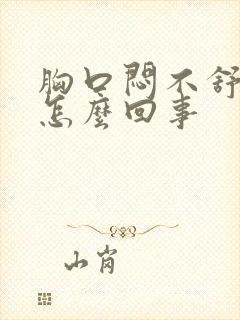 胸口悶不舒
怎麼回事
山肖